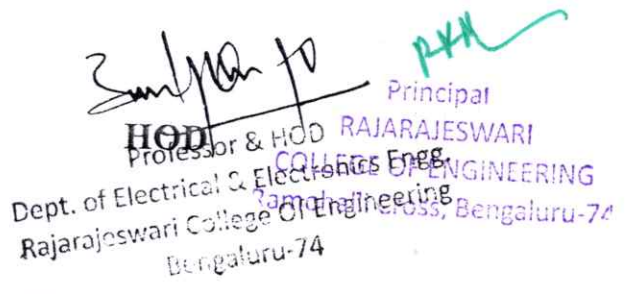 HOD
Professor & HOD
Dept. of Electrical & Electronics Engg.
Rajarajeswari College Of Engineering
Bengaluru-74
Principal
RAJARAJESWARI
COLLEGE OF ENGINEERING
Ramohalli Cross, Bengaluru-74